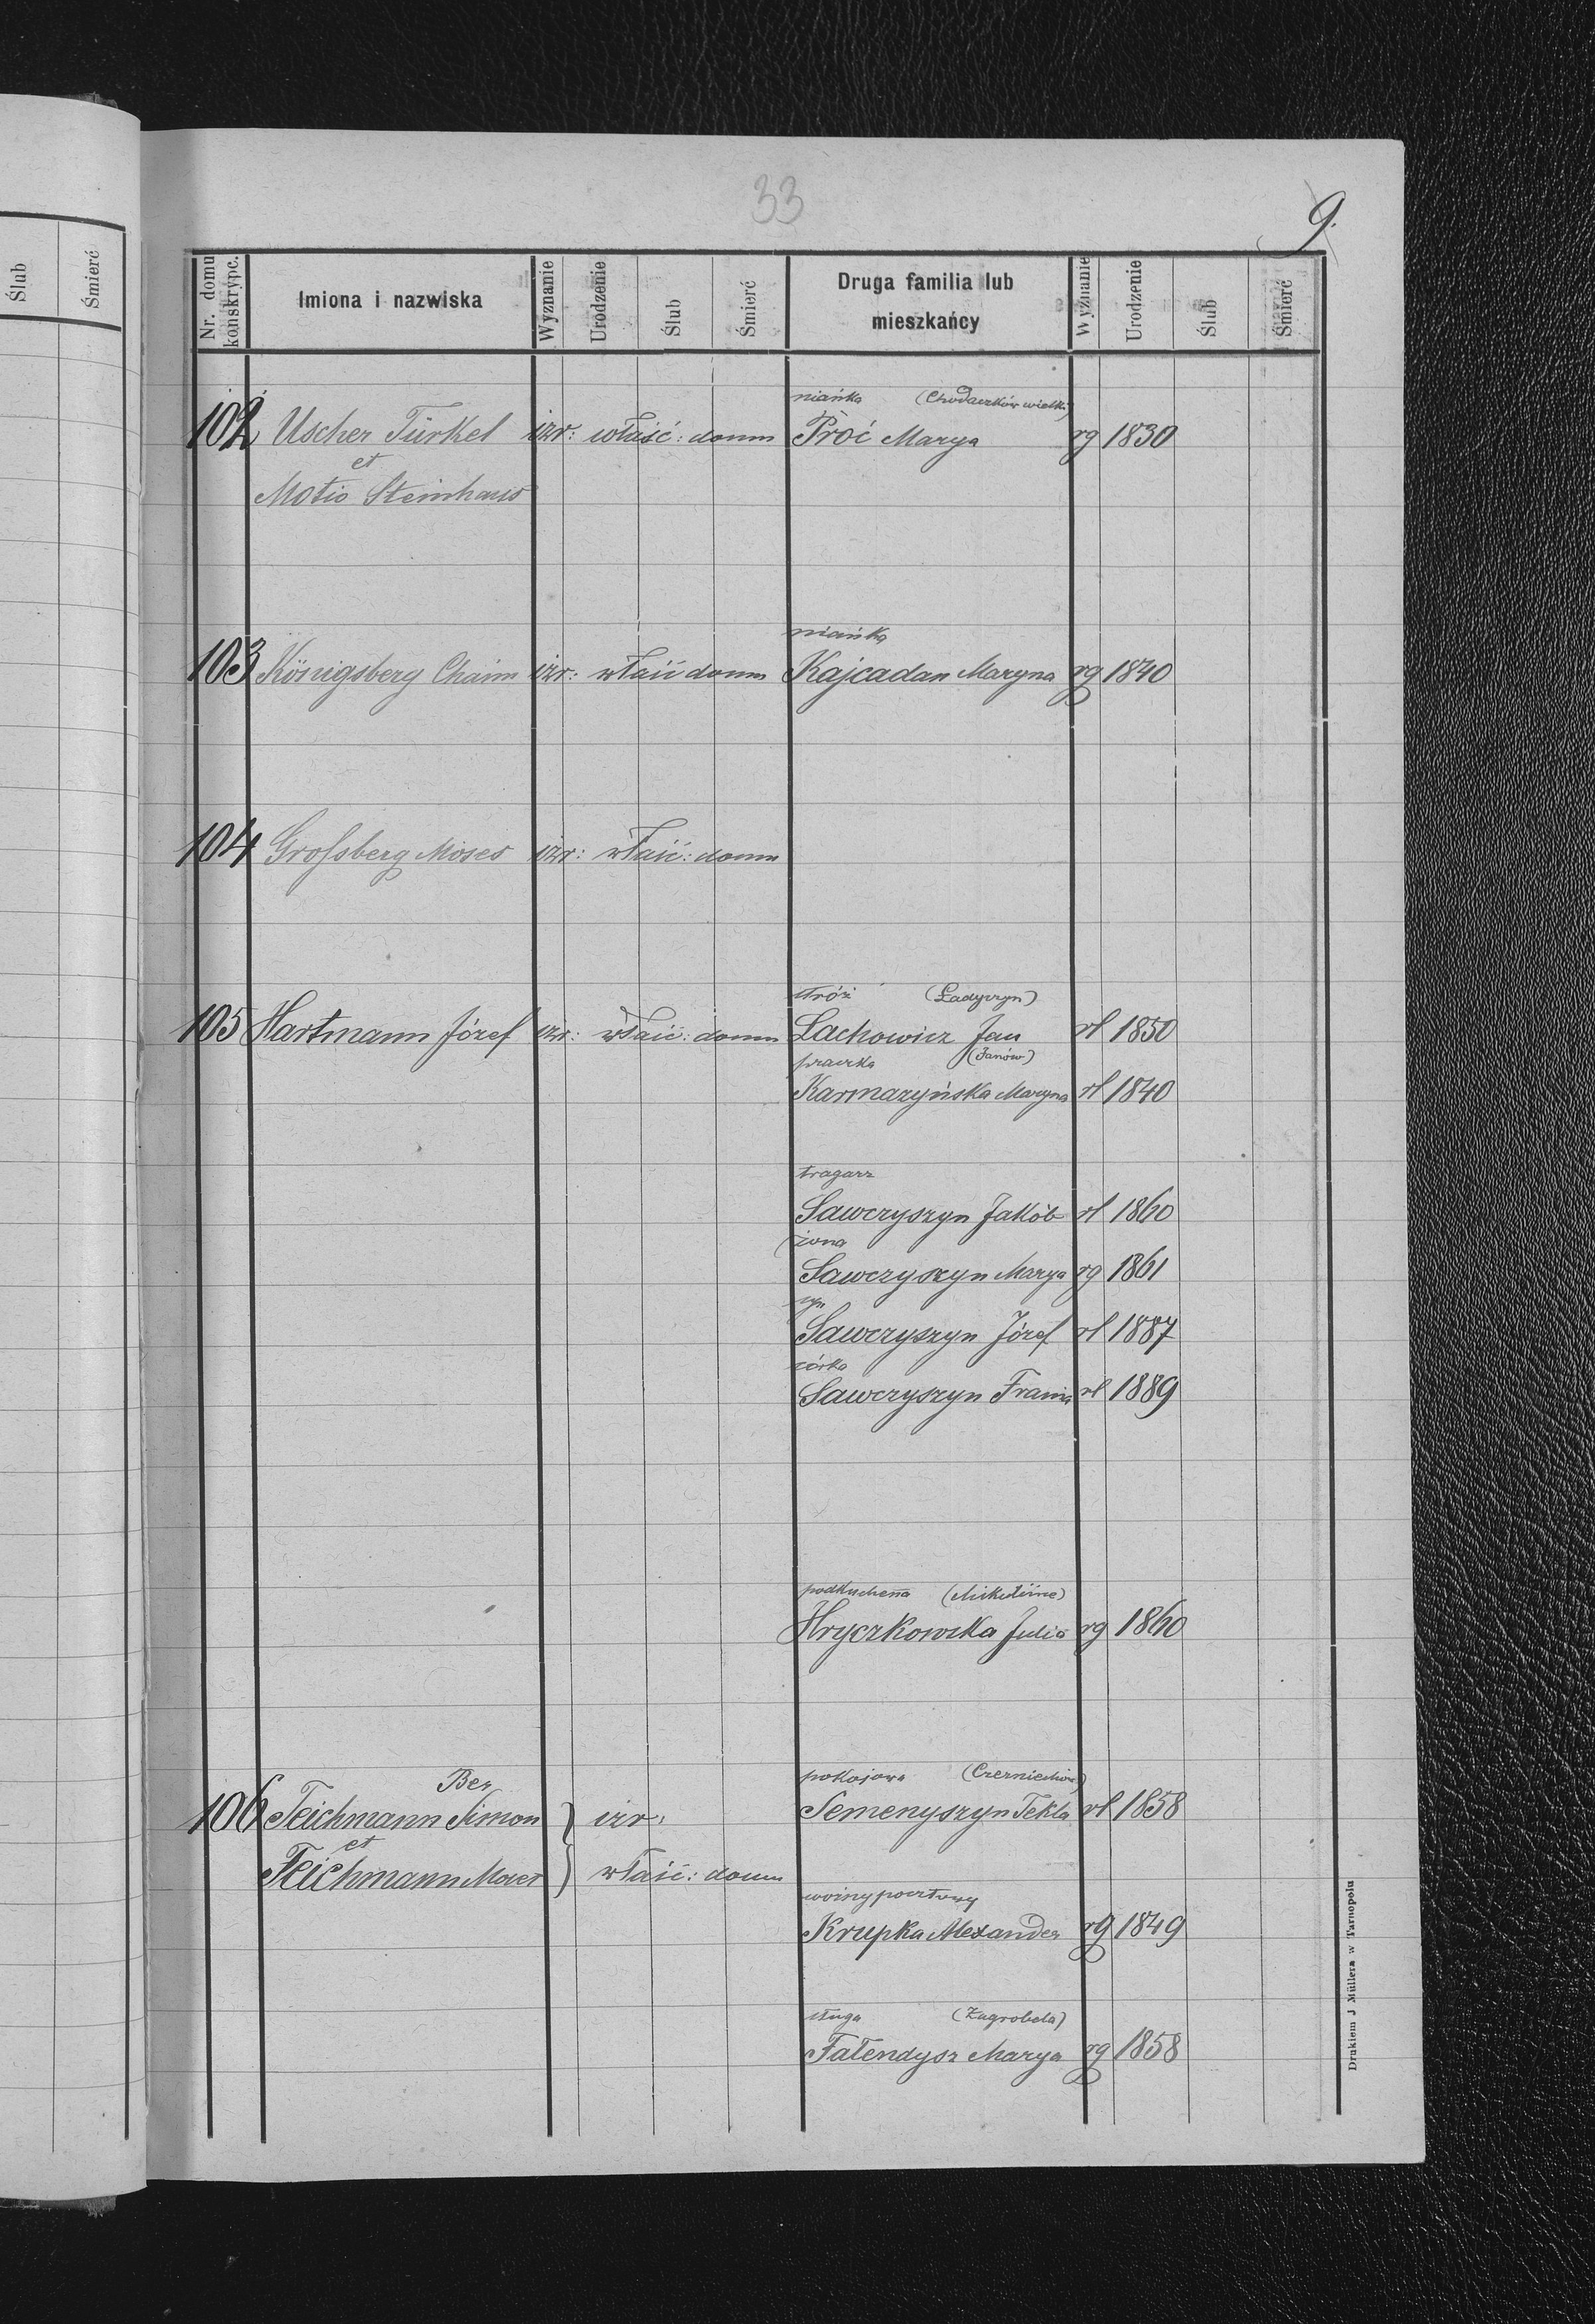 33
9.
Ślub
Śmierć
Nr. domu konskrypc.
Imiona i nazwiska
Wyznanie
Urodzenie
Ślub
Śmierć
Druga familia lub mieszkańcy
Wyznanie
Urodzenie
Ślub
Śmierć
niańka (Chodaczków wielki)
102 Uscher Türkel izr: właść: domu Proć Marya rg 1830
et
Motio Steinhaus
niańka
103 Königsberg Chaim izr: właść domu Kajcadan Maryna rg 1840
104 Grofsberg Moses izr: właść: domu
stróż (Ładyczyn)
105 Hartmann Józef izr: właść: domu Lachowicz Jan rł 1850
praczka (Janów)
Karmazyńska Maryna rł 1840
tragarz
Sawczyszyn Jakób rł 1860
żona
Sawczyszyn Marya rg 1861
syn
Sawczyszyn Józef rł 1887
córka
Sawczyszyn Frania rł 1889
podkuchenna (Mikulińce)
Hryczkowska Julia rg 1860
Ber pokojowa (Czerniechów)
106 Teichmann Simon } izr: Semenyszyn Tekla rł 1858
et
Teichmann Moses } właść: domu
woźny pocztowy
Krupka Alexander rg 1849
sługa (Zagrobela)
Fałendysz Marya rg 1858
Drukiem J Müllera w Tarnopolu